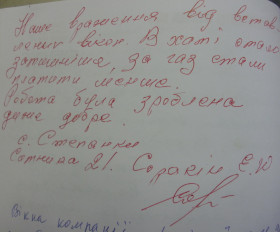 Наше враження від встав-
лених вікон. В хаті стало
затишніше, за газ стали
платити менше.
Робота була зроблена
дуже добре.
с. Степанки
21. Сорокін Є. Ю
Вікна компанії